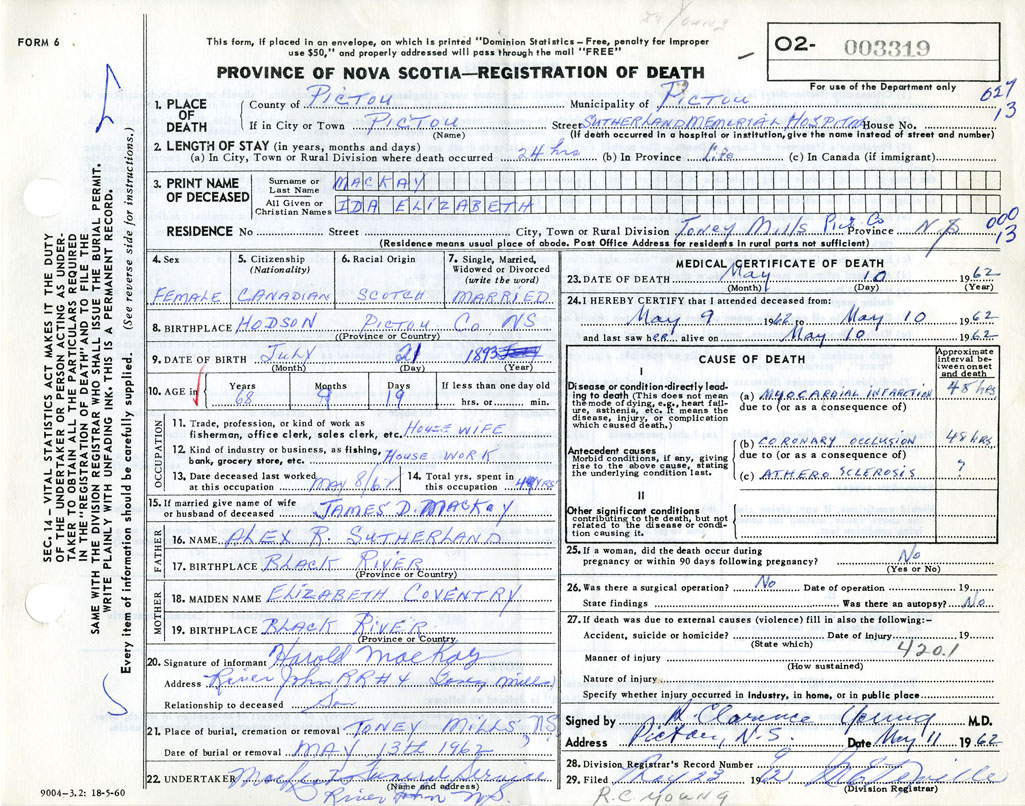 Dr Young
FORM 6
This form, if placed in an envelope, on which is printed "Dominion Statistics – Free, penalty for improper
use $50," and properly addressed will pass through the mail "FREE"
O2- 003319
PROVINCE OF NOVA SCOTIA—REGISTRATION OF DEATH
For use of the Department only
627
13
1. PLACE OF DEATH
County of PICTOU Municipality of PICTOU
If in City or Town PICTOU Street SUTHERLAND MEMORIAL HOSPITAL House No.
(Name) (If death occurred in a hospital or institution, give the name instead of street and number)
2. LENGTH OF STAY (in years, months and days)
(a) In City, Town or Rural Division where death occurred 24 hrs (b) In Province Life (c) In Canada (if immigrant)
3. PRINT NAME OF DECEASED
Surname or Last Name MACKAY
All Given or Christian Names IDA ELIZABETH
RESIDENCE No Street City, Town or Rural Division Toney Mills Pict. Co Province N.S
000
13
(Residence means usual place of abode. Post Office Address for residents in rural parts not sufficient)
SEC. 14 – VITAL STATISTICS ACT MAKES IT THE DUTY
OF THE UNDERTAKER OR PERSON ACTING AS UNDER-
TAKER TO OBTAIN ALL THE PARTICULARS REQUIRED
IN THE "REGISTRATION OF DEATH" AND TO FILE THE
SAME WITH THE DIVISION REGISTRAR WHO SHALL ISSUE THE BURIAL PERMIT.
WRITE PLAINLY WITH UNFADING INK – THIS IS A PERMANENT RECORD.
Every item of information should be carefully supplied. (See reverse side for instructions.)
4. Sex 5. Citizenship (Nationality) 6. Racial Origin 7. Single, Married, Widowed or Divorced (write the word)
FEMALE CANADIAN SCOTCH MARRIED
8. BIRTHPLACE HODSON PICTOU CO. NS
(Province or Country)
9. DATE OF BIRTH July 21 1893
(Month) (Day) (Year)
10. AGE in Years Months Days If less than one day old
68 9 19 hrs. or min.
OCCUPATION
11. Trade, profession, or kind of work as
fisherman, office clerk, sales clerk, etc. HOUSE WIFE
12. Kind of industry or business, as fishing,
bank, grocery store, etc. HOUSE WORK
13. Date deceased last worked
at this occupation MAY 8/62
14. Total yrs. spent in
this occupation YRS
15. If married give name of wife
or husband of deceased JAMES D. MACKAY
FATHER
16. NAME ALEX R. SUTHERLAND
17. BIRTHPLACE BLACK RIVER
(Province or Country)
MOTHER
18. MAIDEN NAME ELIZABETH COVENTRY
19. BIRTHPLACE BLACK RIVER
(Province or Country.
20. Signature of informant Harold Mackay
Address River John RR# 4 Toney Mills
Relationship to deceased Son
21. Place of burial, cremation or removal TONEY MILLS, NS
Date of burial or removal MAY 13th 1962
22. UNDERTAKER Funeral Service
(Name and address)
River John N.S.
9004–3.2: 18-5-60
MEDICAL CERTIFICATE OF DEATH
23. DATE OF DEATH May 10 1962
(Month) (Day) (Year)
24. I HEREBY CERTIFY that I attended deceased from:
May 9 1962 to May 10 1962
and last saw her alive on May 10 1962
CAUSE OF DEATH
Approximate interval between onset and death
I
Disease or condition directly lead-
ing to death (This does not mean
the mode of dying, e.g., heart fail-
ure, asthenia, etc. It means the
disease, injury, or complication
which caused death.)
(a) MYOCARDIAL INFARCTION 48 hrs
due to (or as a consequence of)
(b) CORONARY OCCLUSION 48 HRS
due to (or as a consequence of)
Antecedent causes
Morbid conditions, if any, giving
rise to the above cause, stating
the underlying condition last.
(c) ATHERO SCLEROSIS ?
II
Other significant conditions
contributing to the death, but not
related to the disease or condi-
tion causing it.
25. If a woman, did the death occur during
pregnancy or within 90 days following pregnancy? No
(Yes or No)
26. Was there a surgical operation? No Date of operation 19
State findings Was there an autopsy? No
27. If death was due to external causes (violence) fill in also the following:–
Accident, suicide or homicide? Date of injury 19
(State which) 420.1
Manner of injury
(How sustained)
Nature of injury
Specify whether injury occurred in industry, in home, or in public place
Signed by Clarence Young M.D.
Address Pictou, N.S. Date May 11 1962
28. Division Registrar's Record Number 9
29. Filed May 23 1962
(Division Registrar)
R.C YOUNG